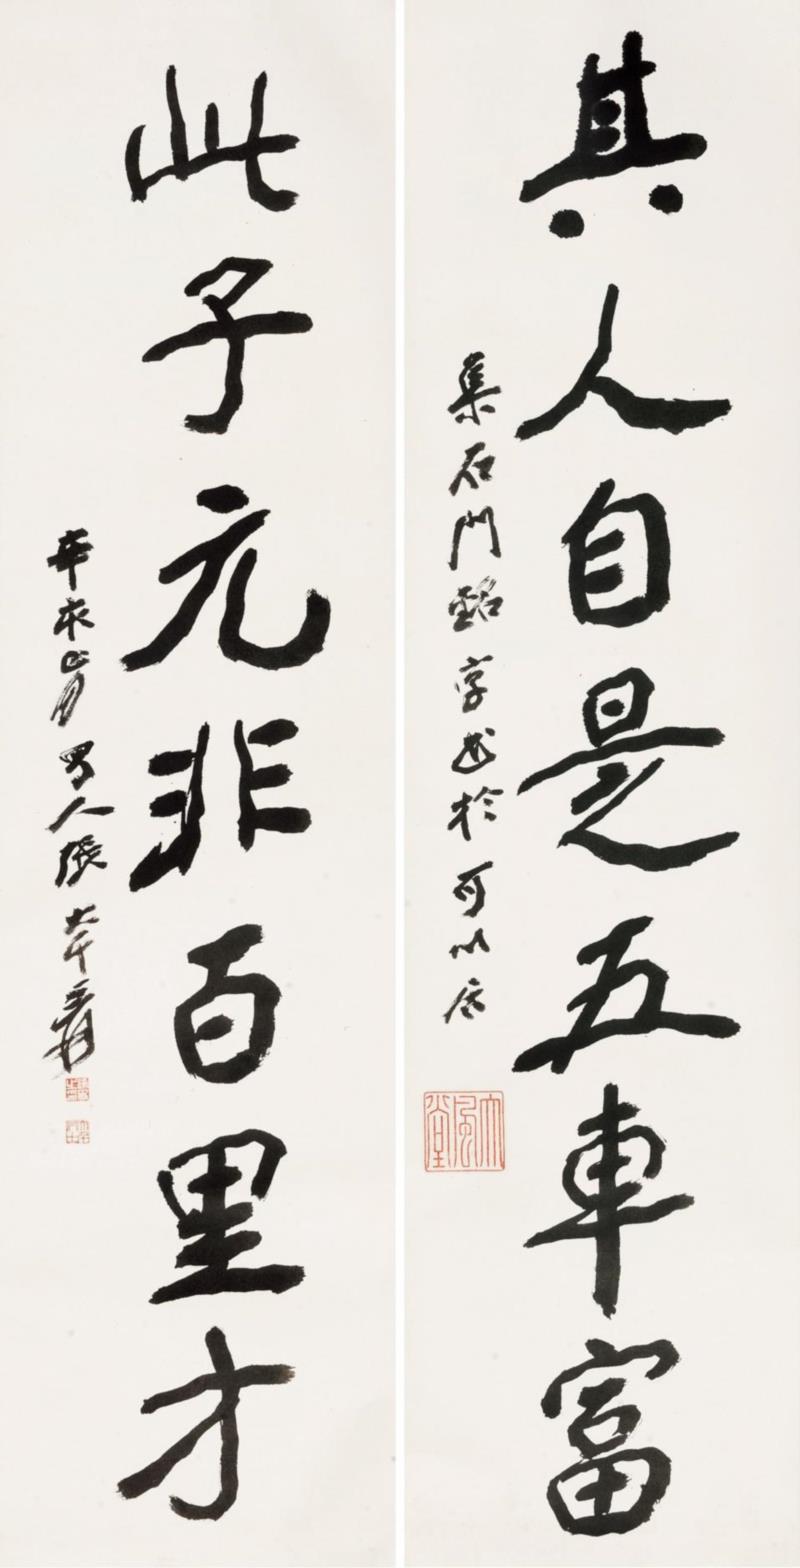 其人自是五車富
集石門銘字書於可以居
大風堂
此子元非百里才
辛亥
蜀人張大千爰